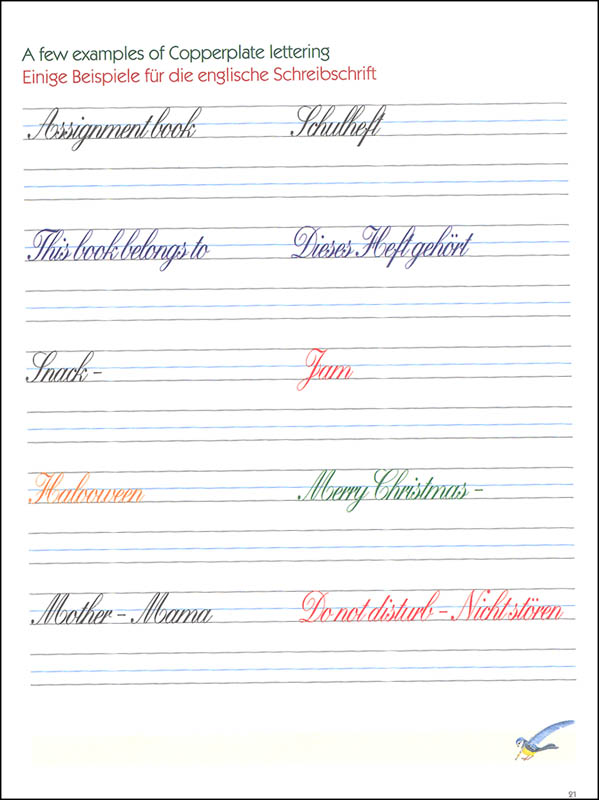 A few examples of Copperplate lettering
Einige Beispiele für die englische Schreibschrift
Assignment book
Schulheft
This book belongs to
Dieses Heft gehört
Snack –
Jam
Halooween
Merry Christmas –
Mother – Mama
Do not disturb – Nicht stören
21